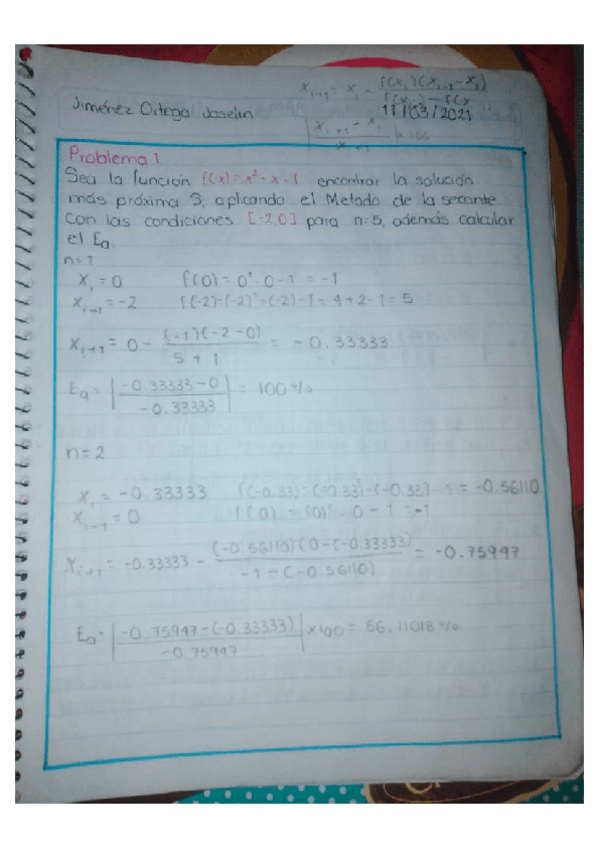 Jiménez Ortega Joselin
x_{i+1} = x_i - f(x_i)(x_{i-1} - x_i)
11/03/2021
Problema 1
Sea la función f(x) = x² - x - 1 encontrar la solución
más próxima 3, aplicando el Metodo de la secante
con las condiciones [-2,0] para n=5, además calcular
el Ea.
n=1
x_i = 0 f(0) = 0² - 0 - 1 = -1
x_{i-1} = -2 f(-2) = (-2)² - (-2) - 1 = 4 + 2 - 1 = 5
x_{i+1} = 0 - (-1)(-2-0) / 5 + 1 = -0.33333
Ea = | -0.33333 - 0 / -0.33333 | = 100%
n=2
x_i = -0.33333 f(-0.33) = (-0.33)² - (-0.33) - 1 = -0.56110
x_{i-1} = 0 f(0) = (0)² - 0 - 1 = -1
x_{i+1} = -0.33333 - (-0.56110)(0 - (-0.33333) / -1 - (-0.56110) = -0.75947
Ea = | -0.75947 - (-0.33333) / -0.75947 | x100 = 56.11018%